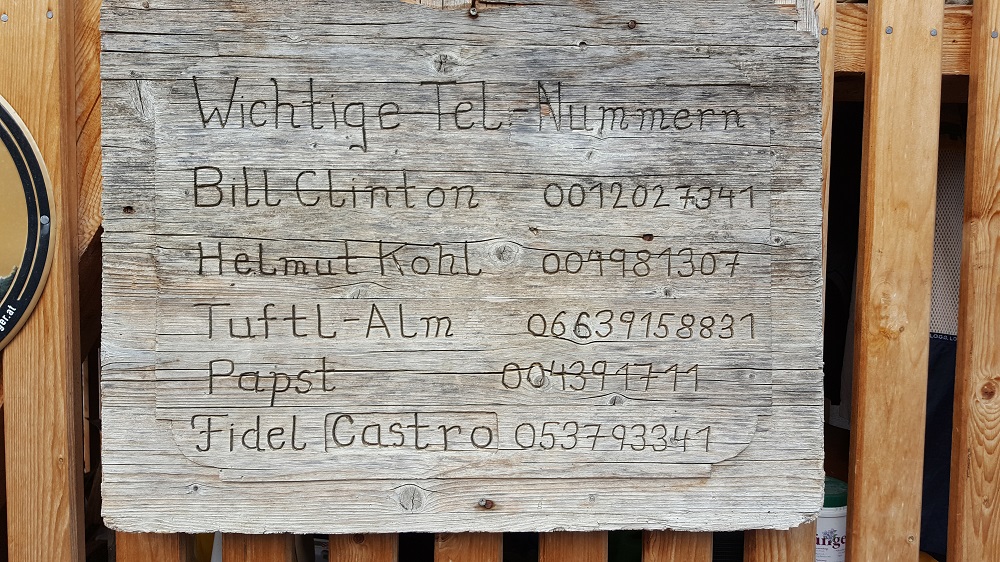 Wichtige Tel-Nummern
Bill Clinton 0012027341
Helmut Kohl 004981307
Tuftl-Alm 06639158831
Papst 004391711
Fidel Castro 053793341
ger.at